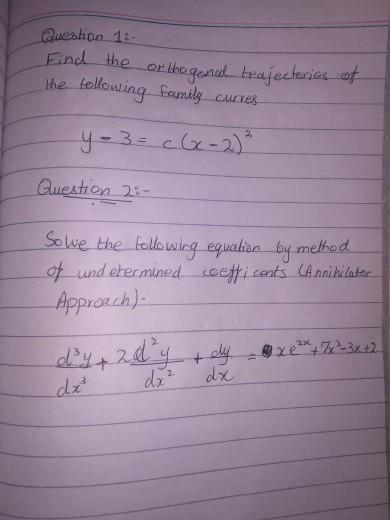 Question 1:-
Find the orthogonal trajectories of
the following family curves
y - 3 = c(x - 2)²
Question 2:-
Solve the following equation by method
of undetermined coefficents (Annihilator
Approach):-
d³y/dx³ + 2d²y/dx² + dy/dx = xe²ˣ + 7x² - 3x + 2